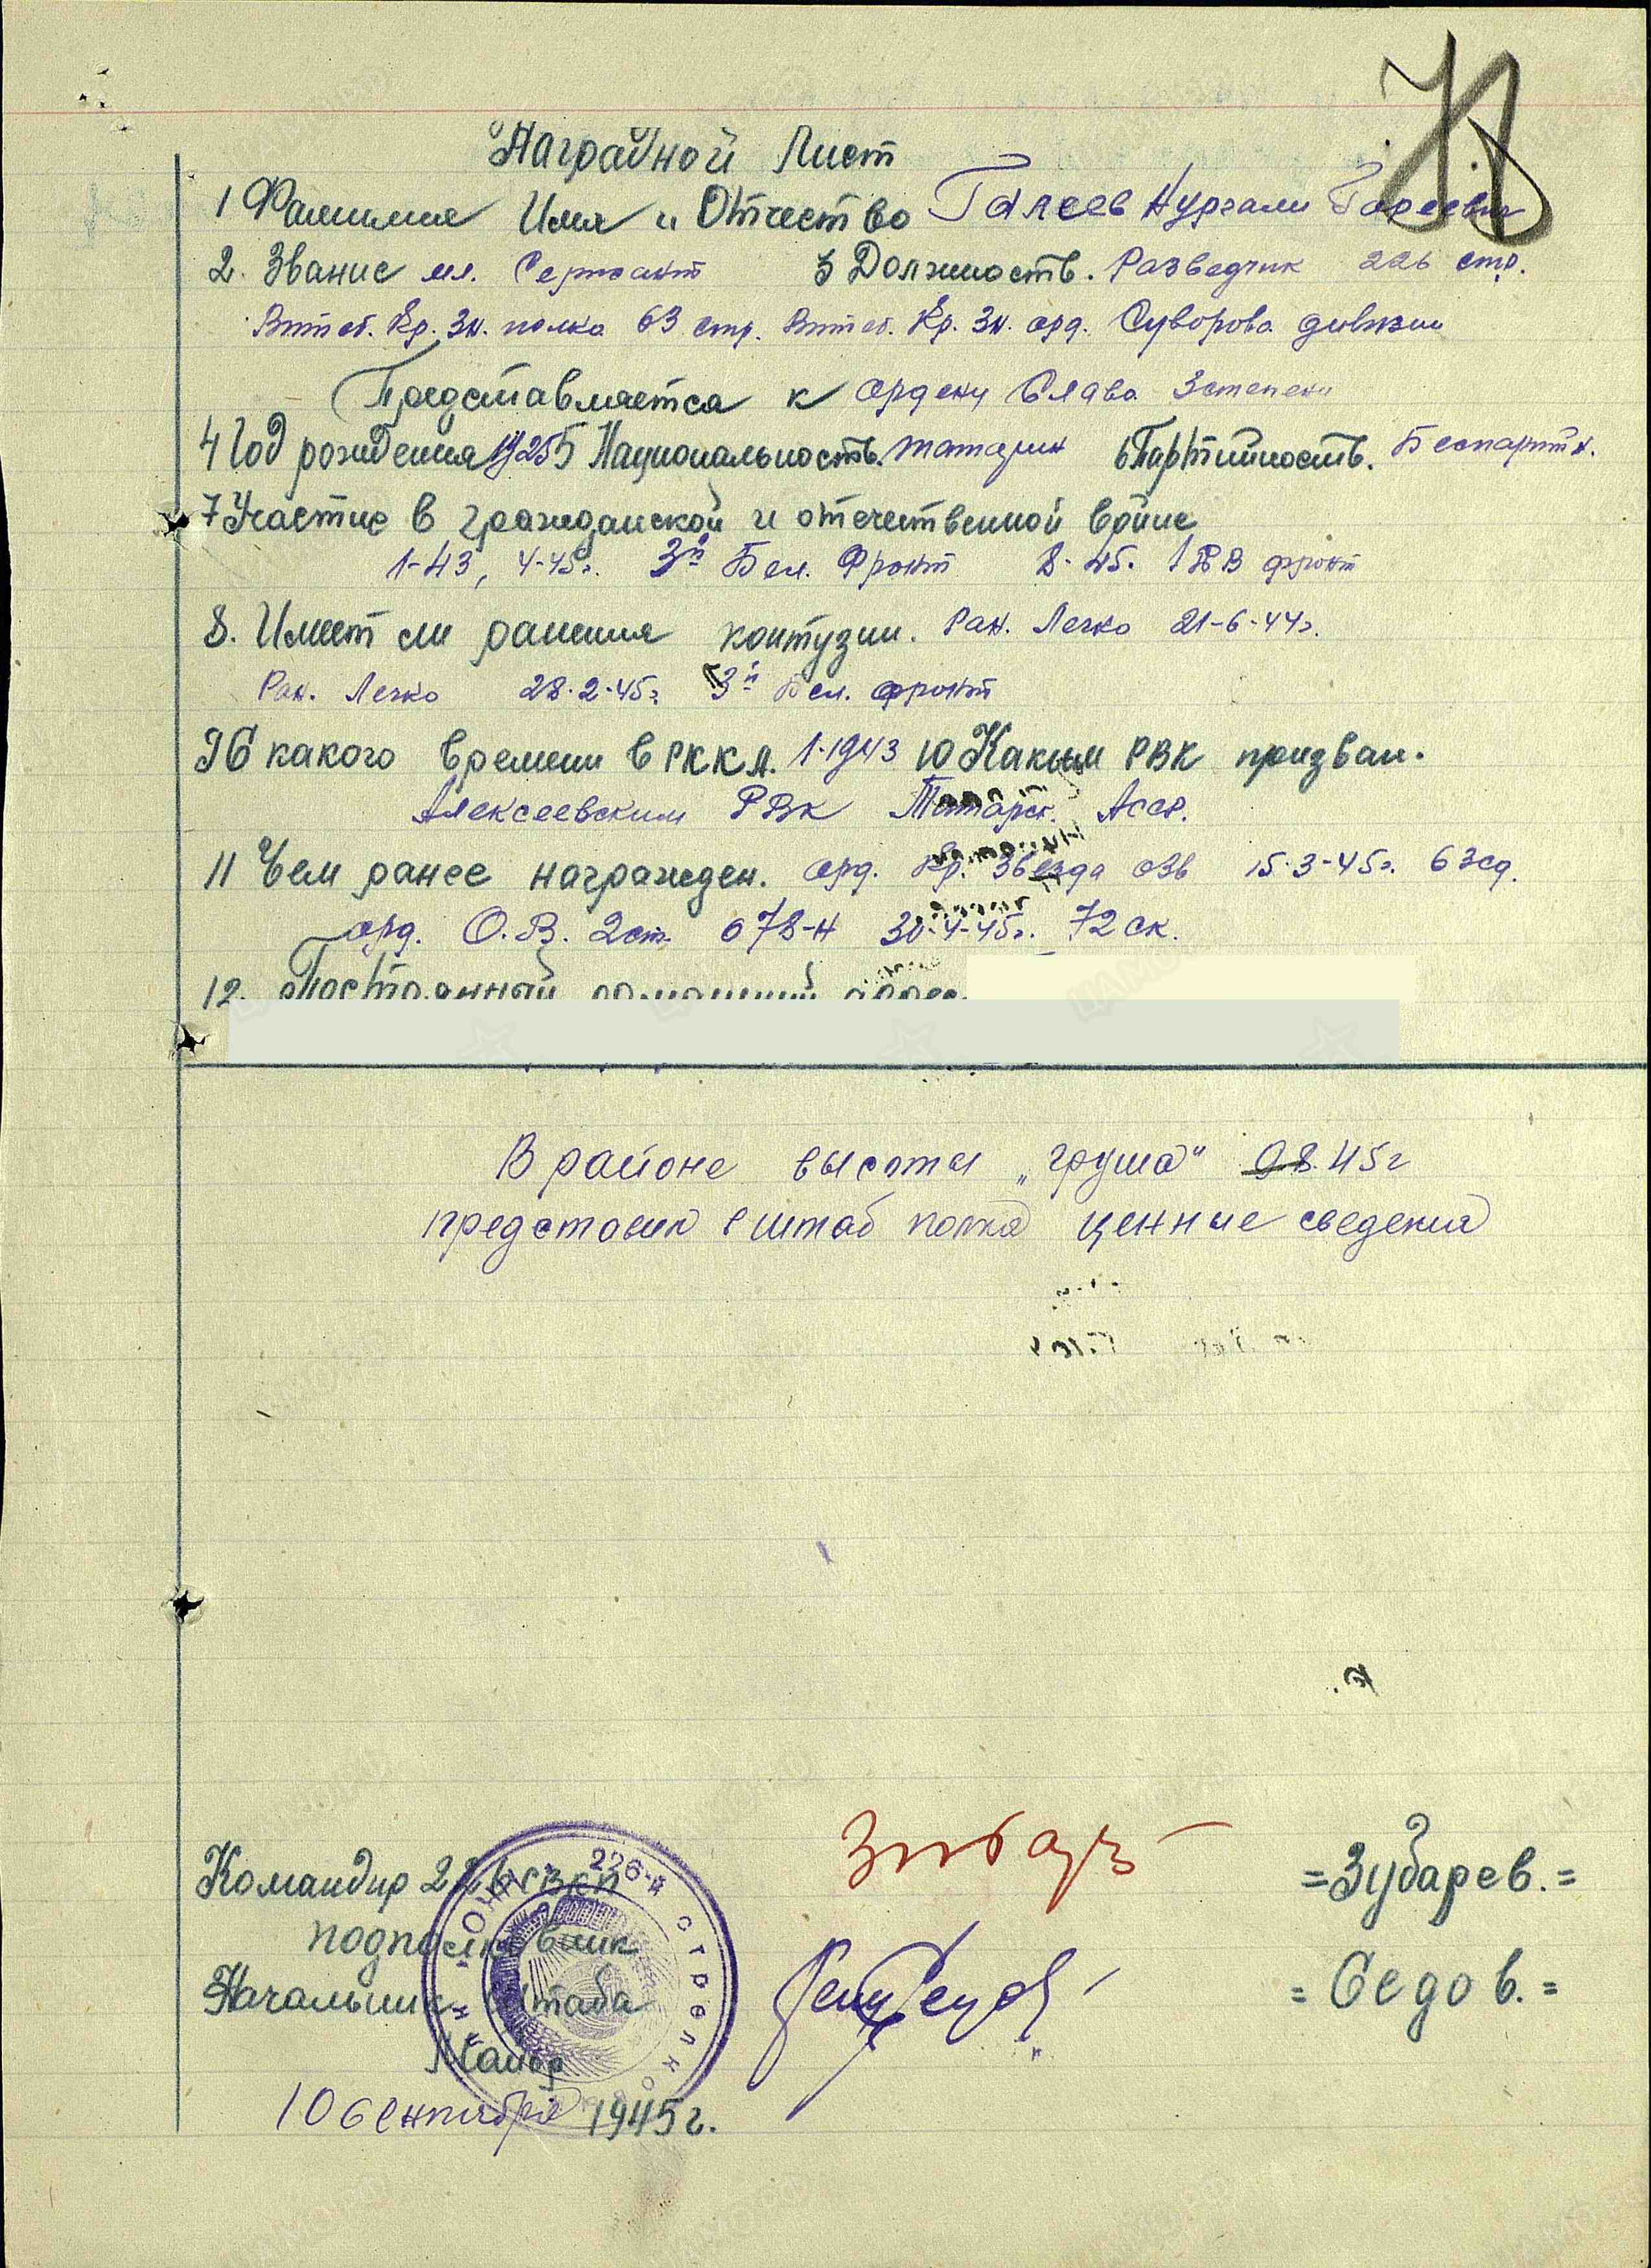 Наградной Лист
1 Фамилия Имя и Отчество Галеев Нургали Гареевич
2. Звание мл. Сержант 3 Должность. Разведчик 226 стр.
Витеб. Кр. Зн. полка 63 стр. Витеб. Кр. Зн. орд. Суворова дивизии
Представляется к ордену Слава 3 степени
4 Год рождения 1925 5 Национальность. татарин 6 Партийность. Беспартийн.
7 Участие в гражданской и отечественной войне
1-43, 4-45г. 3й Бел. Фронт 8-45. 1 ДВ фронт
8. Имеет ли ранения контузии. Ран. Легко 21-6-44г.
Ран. Легко 28.2.45г. 3й Бел. фронт
9 С какого времени в РККА. 1-1943 10 Каким РВК призван.
Алексеевским РВК Татарск. Асср.
11 Чем ранее награжден. орд. Кр. Звезда 03в 15.3-45г. 63сд.
орд. О.В. 2ст. 078-н 30-4-45г. 72 ск.
12. Постоянный домашний адрес.
В районе высоты „груша" 08.45г
представил в штаб полка ценные сведения
Командир 226 СВКП Зубар = Зубарев. =
226-й стрелко
подполковник
Начальник Штаба Седов = Седов. =
Майор
10 Сентября 1945 г.